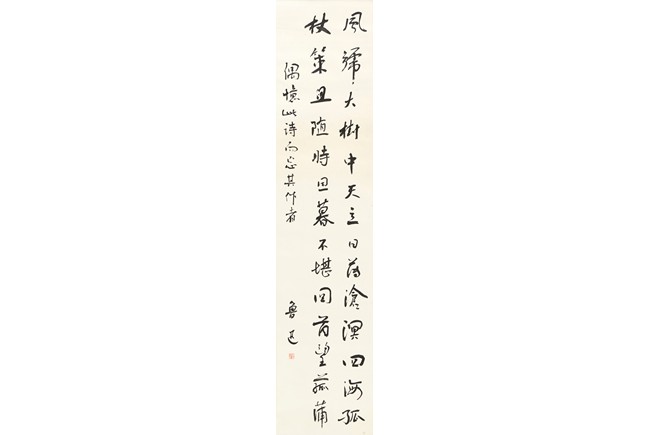 風號大樹中天立日薄滄溟四海孤
杖策且随時旦暮不堪回首望菰蒲
偶憶此诗而忘其作者
魯迅